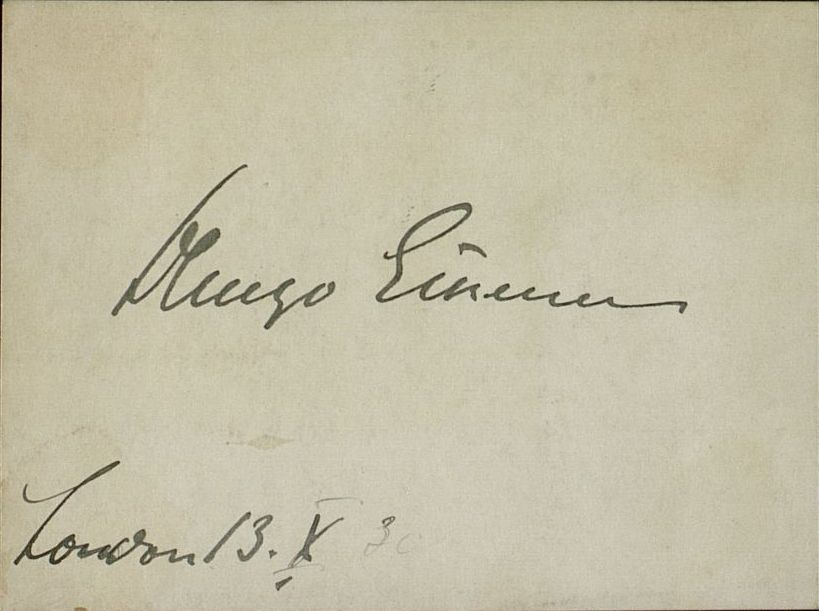 Hugo
London 13. X 30